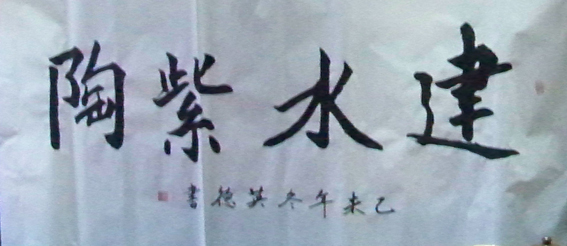 建水紫陶
乙未年冬英德書